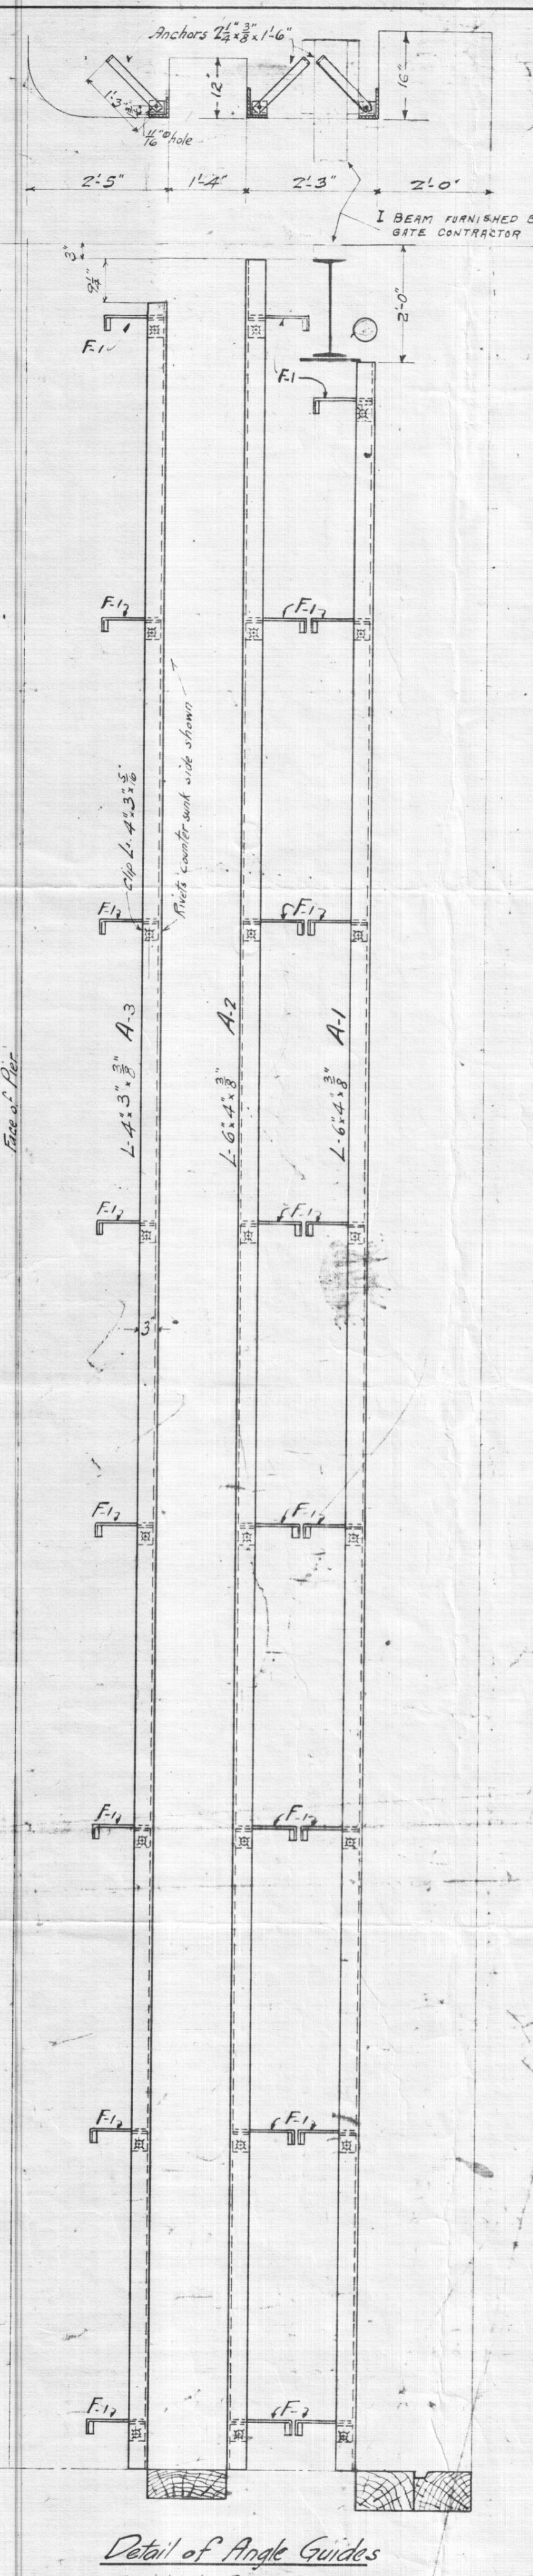 Anchors 2 1/4" x 3/8" x 1'-6"
1'-3"
11/16" ø hole
12"
16"
2'-5"
1'-4"
2'-3"
2'-0"
I BEAM FURNISHED
GATE CONTRACTOR
3"
2'-0"
F-1
F-1
F-1
F-1
Clip L- 4" x 3" x 5/16"
Rivets counter sunk side shown
F-1
F-1
L- 4" x 3" x 3/8" A-3
L- 6" x 4" x 3/8" A-2
L- 6" x 4" x 3/8" A-1
Face of Pier
F-1
F-1
3"
F-1
F-1
F-1
F-1
F-1
F-1
F-1
Detail of Angle Guides